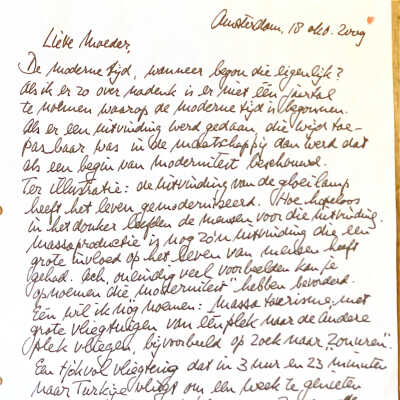 Amsterdam, 18 okt. 2009
Lieve Moeder,
De moderne tijd, wanneer begon die eigenlijk?
Als ik er zo over nadenk is er niet één jaartal
te noemen waarop de moderne tijd is begonnen.
Als er een uitvinding werd gedaan die wijd toe-
pasbaar was in de maatschappij dan werd dat
als een begin van moderniteit beschouwd.
Ter illustratie: de uitvinding van de gloeilamp
heeft het leven gemoderniseerd. Hoe hopeloos
in het donker leefden de mensen voor die uitvinding.
Massaproductie is nog zo'n uitvinding die een
grote invloed op het leven van mensen heeft
gehad. Ach, oneindig veel voorbeelden kan je
opnoemen die "moderniteit" hebben bevorderd.
Eén wil ik nog noemen: "massa toerisme", met
grote vliegtuigen van één plek naar de andere
plek vliegen, bijvoorbeeld op zoek naar "zonuren".
Een tjokvol vliegtuig dat in 3 uur en 23 minuten
naar Turkije vliegt om een week te genieten